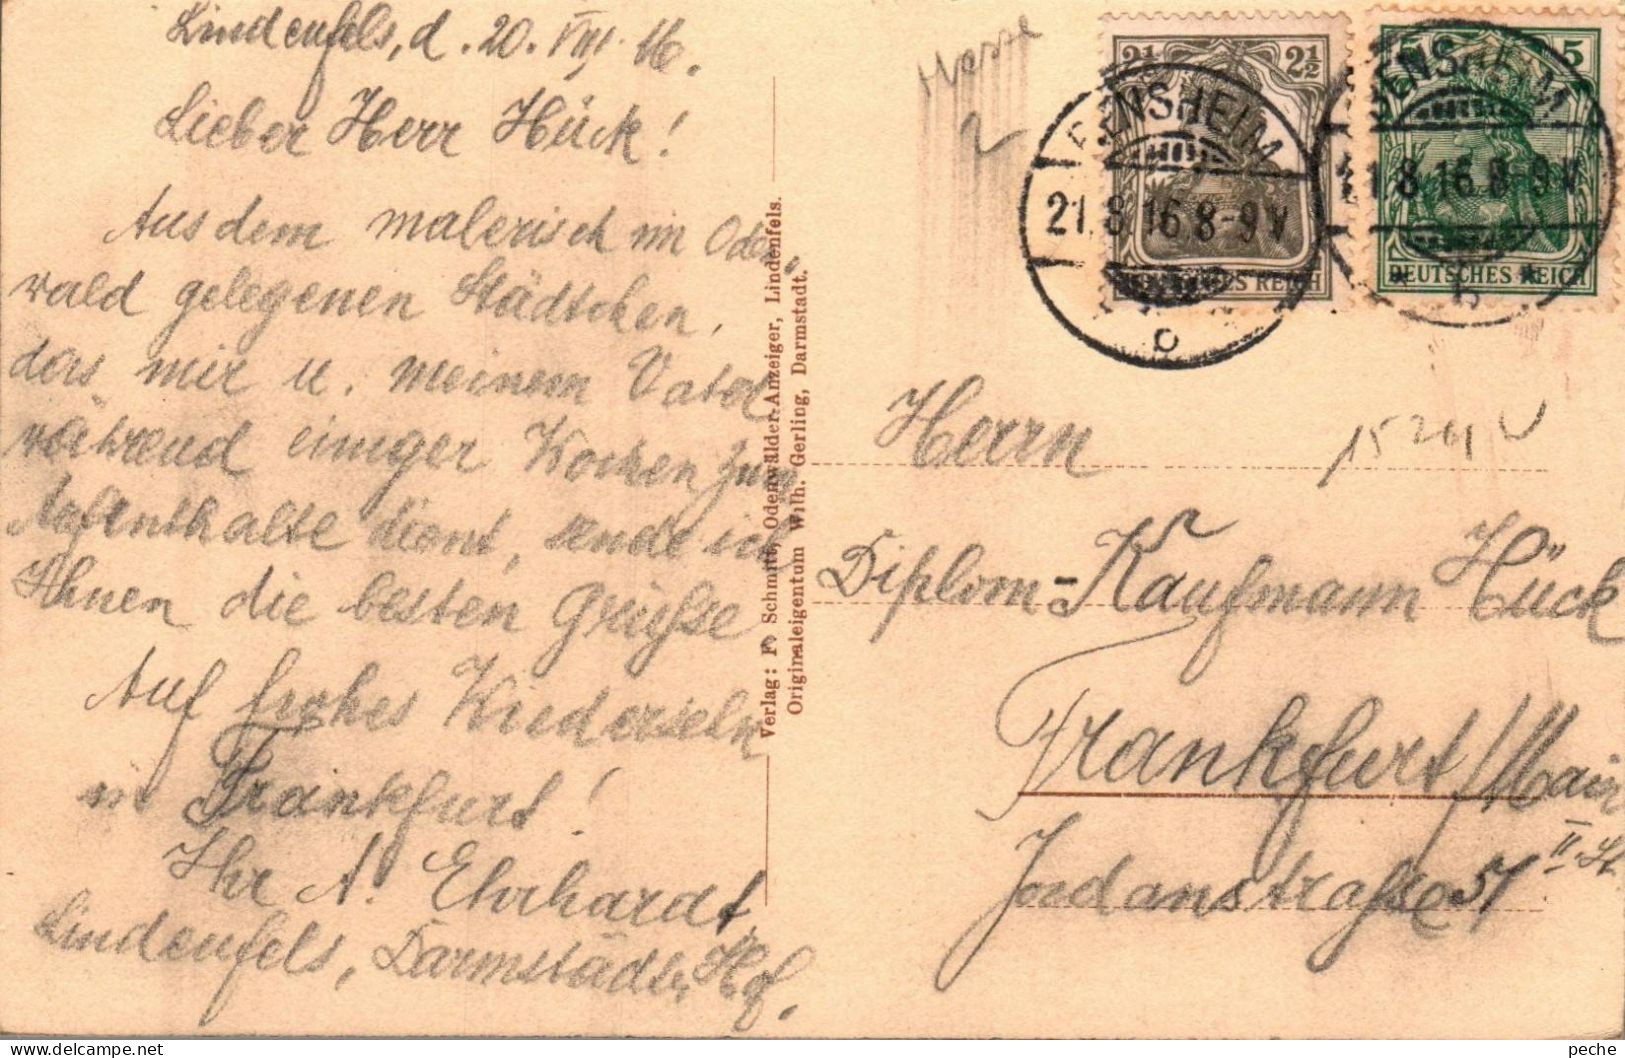 Lindenfels, d. 20. VIII. 16.
Lieber Herr Hück!
Aus dem malerisch im Oden-
wald gelegenen Städtchen,
das mir u. meinem Vater
während einiger Wochen zum
Aufenthalte dient, sende ich
Ihnen die besten Grüsse
Auf frohes Wiedersehn
in Frankfurt!
Ihr A. Ehrhardt,
Lindenfels, Darmstädter Hof.
Verlag: F. Schmitt, Odenwälder-Anzeiger, Lindenfels.
Originaleigentum Wilh. Gerling, Darmstadt.
Messe
2½ 2½
BENSHEIM
21.8.16 8-9 V
DEUTSCHES REICH
b
5 5
BENSHEIM
21.8.16 8-9 V
DEUTSCHES REICH
b
Herrn
Diplom-Kaufmann Hück
Frankfurt/Main
Jordanstraße 51 II. St.
peche